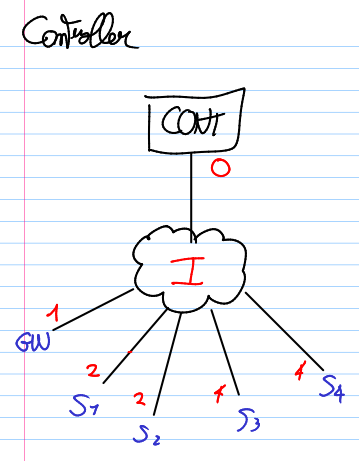 Controller
CONT
0
I
1
GW
2
S1
2
S2
4
S3
4
S4